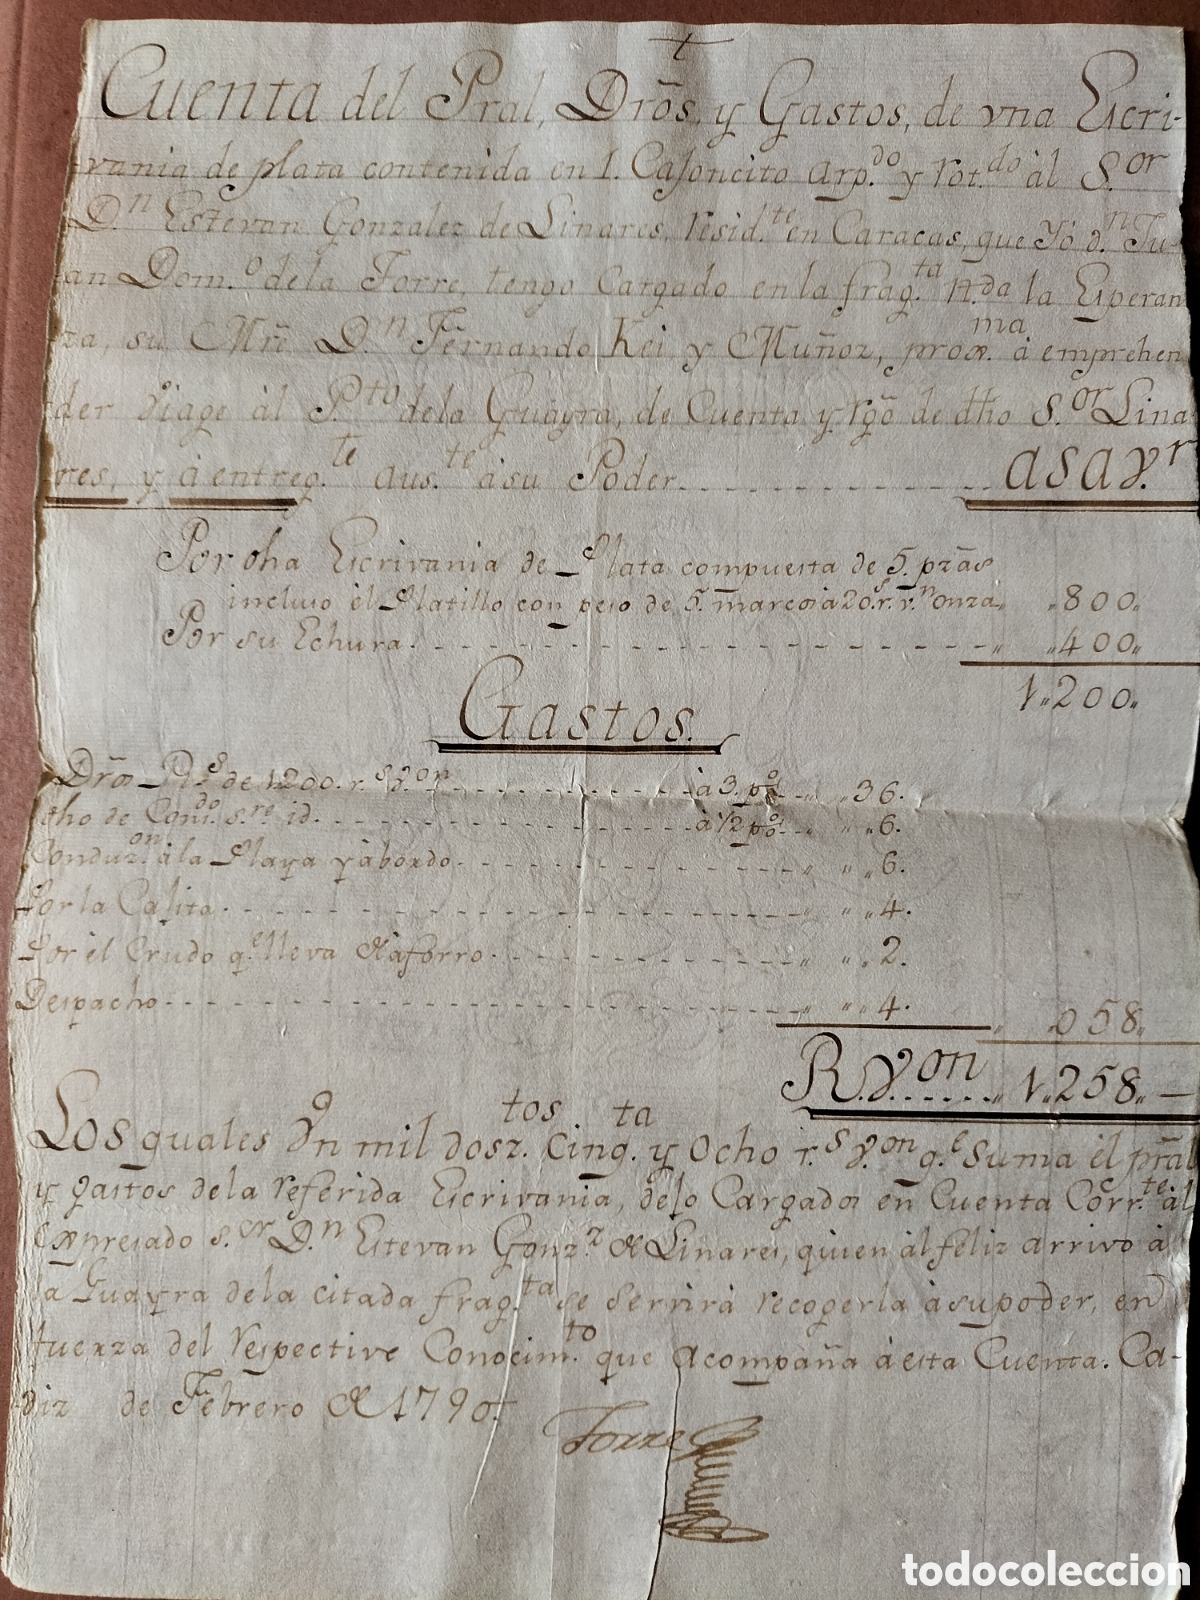 †
Cuenta del Pral, Dros, y Gastos, de vna Escri-
vania de plata contenida en 1. Cajoncito arp.do y rot.do àl S.or
D.n Estevan Gonzalez de Linares, resid.te en Caracas, que Yó d.n Ju-
an Dom.o de la Torre, tengo Cargado en la frag.ta N.da la Esperan
za, su Mre D.n Fernando Kei y Muñoz, prox.ma à emprehen
der viage àl P.to de la Guayra, de Cuenta y rgo de dho S.or Lina
res, y à entreg.te aus.te à su Poder. asav.r
Por dha Escrivania de Plata compuesta de 5. pzas
incluso èl Platillo con peso de 5. marcos à 20 r.s v.n onza " 800 "
Por su Echura " 400 "
1"200"
Gastos.
Dros Pls de 1200. r.s v.on à 3. p% " 36.
dho de Com.do s.re id. à 1/2 p% " 6.
Conduz.on à la Playa y àbordo " 6.
Por la Cajita " 4.
Por èl Crudo q.e lleva de aforro " 2.
Despacho " 4. 058"
R. v.on 1"258"
Los quales Vn mil dosz.tos Cinq.ta y Ocho r.s v.on q.e Suma èl pral
y gastos de la referida Escrivania, dejo Cargados en Cuenta Corr.te àl
Expresado S.or D.n Estevan Gonz.z de Linares, quien àl feliz arrivo à
la Guayra de la citada frag.ta se Servirà recogerla à su poder, en
fuerza del respective Conocim.to que acompaña à esta Cuenta. Ca-
diz de Febrero de 1790.
Torre
todocoleccion